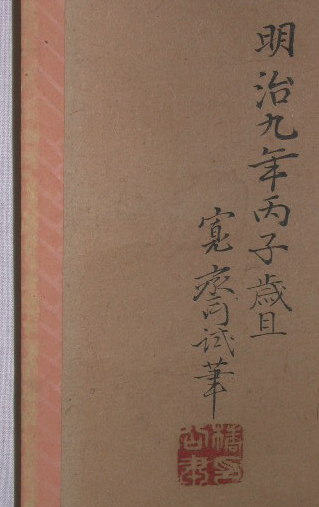 明治九年丙子歳旦
寛齋試筆